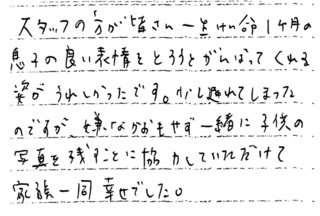 スタッフの方が皆さん一生けん命1ヶ月の
息子の良い表情をとろうとがんばってくれる
姿がうれしかったです。少し遅れてしまった
のですが、嫌なかおもせず一緒に子供の
写真を残すことに協力していただけて
家族一同幸せでした。